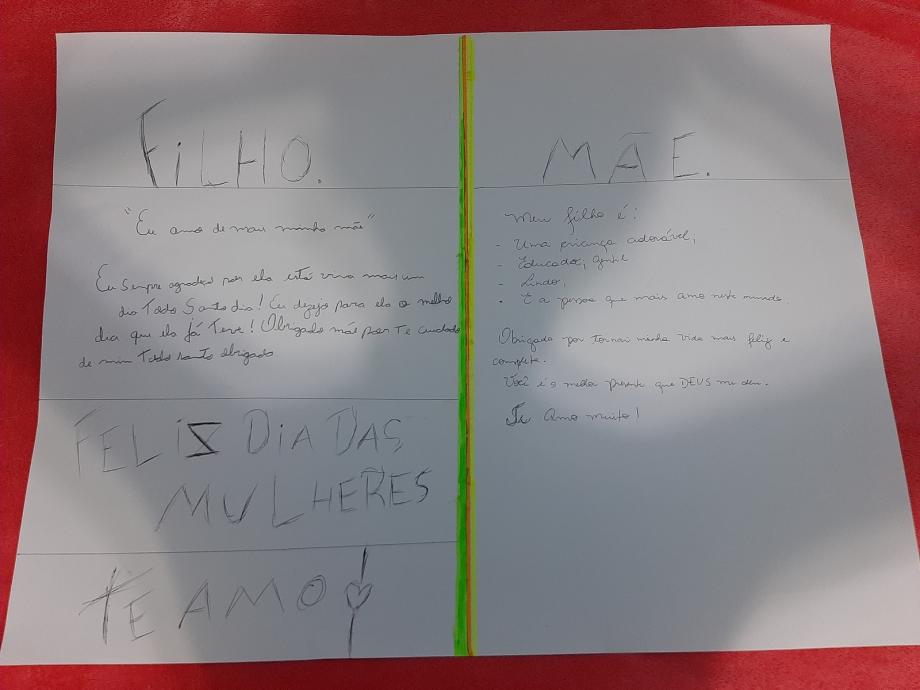 FiLHO.
"Eu amo de mais minha mãe"
Eu Sempre agradeço por ela está viva mais um
dia Todo Santo dia! Eu dezejo para ela o melho
dia que ela Já Teve! Obrigado mãe por Te cuidado
de mim Todo santo obrigado
FELIZ DiA DAS
MULHERES
TE AMO
MÃE.
Meu filho é:
- Uma criança adorável,
- Educador, gentil
- Lindo,
- E a pessoa que mais amo neste mundo.
Obrigada por tornar minha vida mais feliz e
completa.
Você é o melhor presente que DEUS me deu.
Te Amo muito!